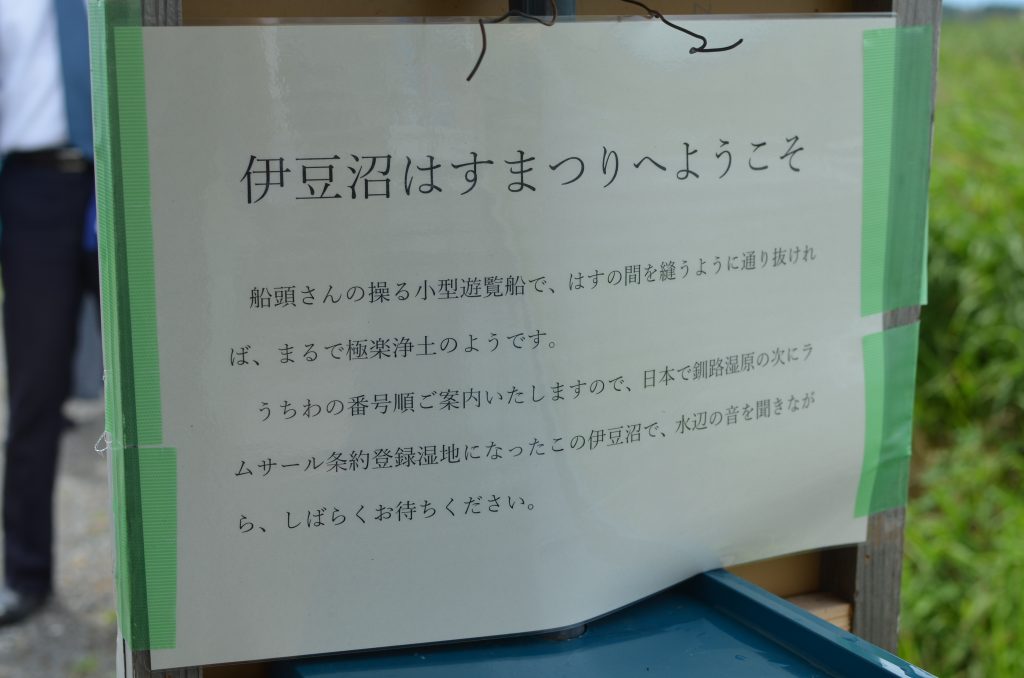 伊豆沼はすまつりへようこそ
船頭さんの操る小型遊覧船で、はすの間を縫うように通り抜けれ
ば、まるで極楽浄土のようです。
うちわの番号順ご案内いたしますので、日本で釧路湿原の次にラ
ムサール条約登録湿地になったこの伊豆沼で、水辺の音を聞きなが
ら、しばらくお待ちください。